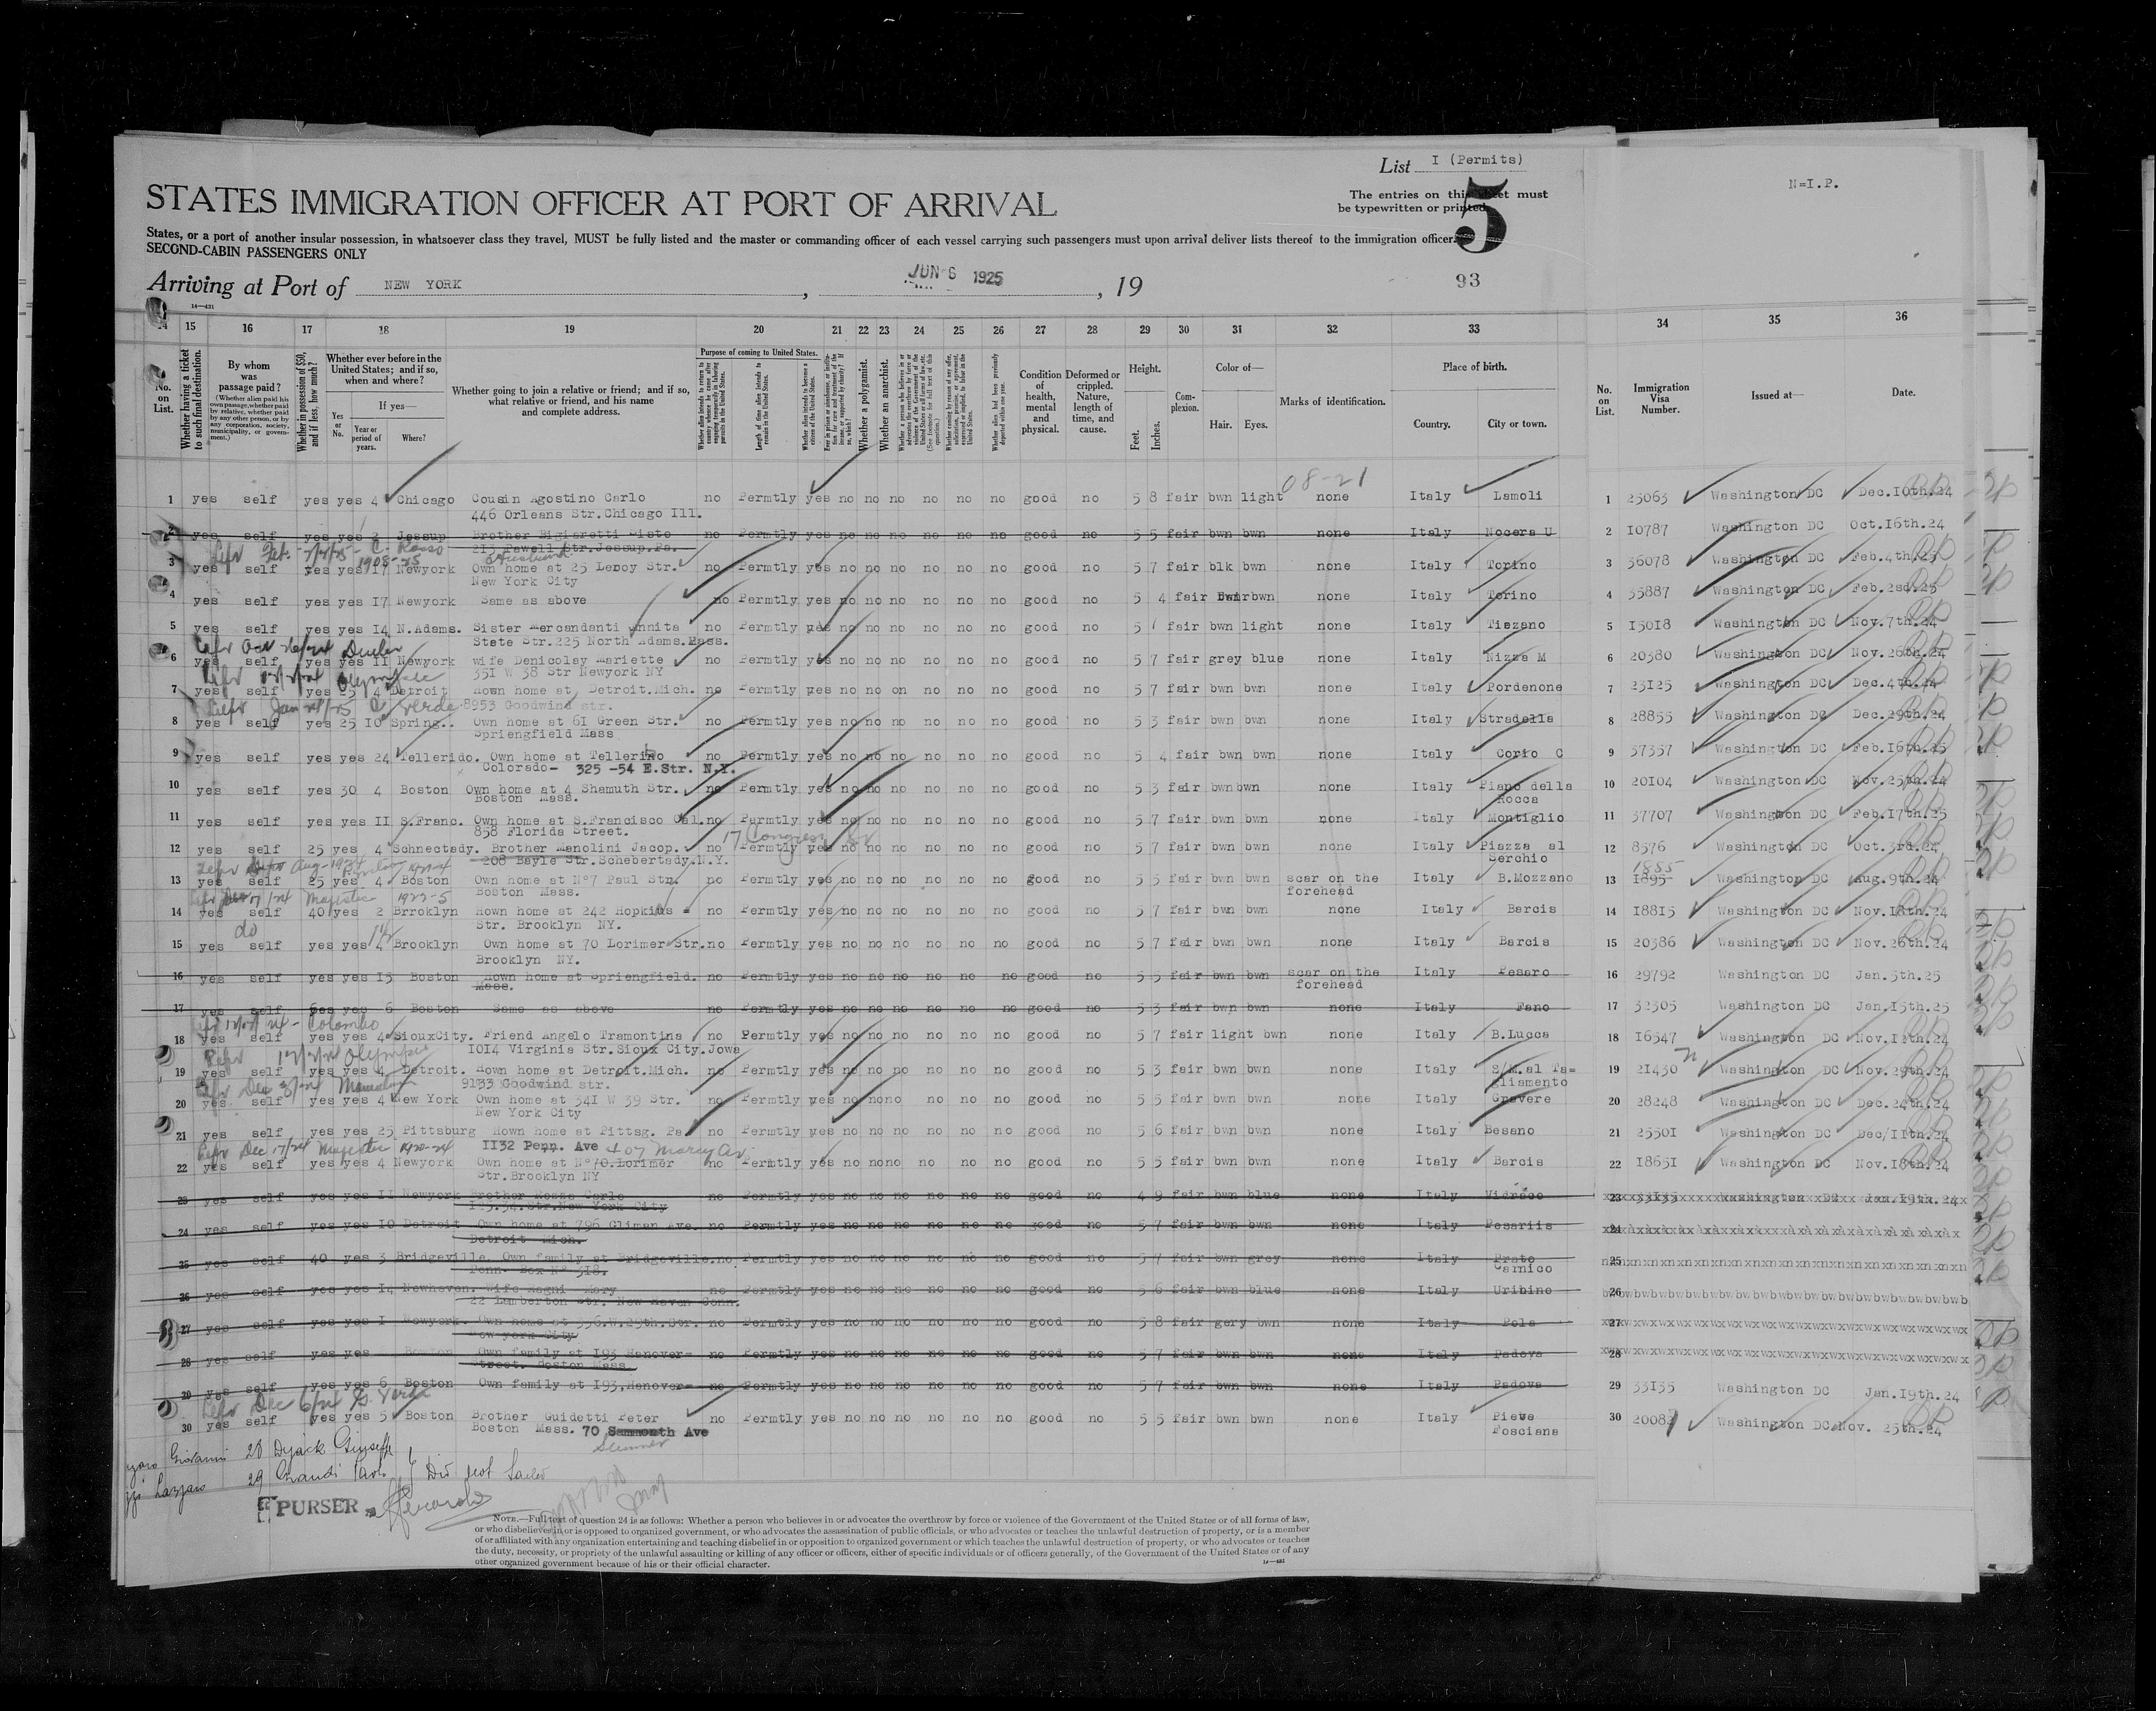 List I (Permits)
N=I.P.
5
STATES IMMIGRATION OFFICER AT PORT OF ARRIVAL
The entries on this sheet must
be typewritten or printed.
States, or a port of another insular possession, in whatsoever class they travel, MUST be fully listed and the master or commanding officer of each vessel carrying such passengers must upon arrival deliver lists thereof to the immigration officer.
SECOND-CABIN PASSENGERS ONLY
Arriving at Port of NEW YORK, JUN 6 1925, 19
93
14—431
14 15 16 17 18 19 20 21 22 23 24 25 26 27 28 29 30 31 32 33 34 35 36
No. on List.
Whether having a ticket to such final destination.
By whom was passage paid?
(Whether alien paid his own passage, whether paid by relative, whether paid by any other person, or by any corporation, society, municipality, or government.)
Whether in possession of $50, and if less, how much?
Whether ever before in the United States; and if so, when and where?
Yes or No.
If yes—
Year or period of years.
Where?
Whether going to join a relative or friend; and if so, what relative or friend, and his name and complete address.
Purpose of coming to United States.
Length of time alien intends to remain in the United States.
Whether a polygamist.
Whether an anarchist.
Condition of health, mental and physical.
Deformed or crippled. Nature, length of time, and cause.
Height.
Feet. Inches.
Complexion.
Color of—
Hair. Eyes.
Marks of identification.
Place of birth.
Country. City or town.
No. on List.
Immigration Visa Number.
Issued at—
Date.
08-21
1 yes self yes yes 4 Chicago Cousin Agostino Carlo no Permtly yes no no no no no good no 5 8 fair bwn light none Italy Lamoli 1 25063 Washington DC Dec.10th.24
446 Orleans Str.Chicago Ill.
2 yes self yes yes 2 Jessup Brother Bigiaretti Sisto no Permtly yes no no no no no good no 5 5 fair bwn bwn none Italy Nocera U 2 10787 Washington DC Oct.16th.24
213 Powell Str.Jessup.Pa.
1908-25
3 yes self yes yes 17 Newyork Own home at 25 Leroy Str. no Permtly yes no no no no no good no 5 7 fair blk bwn none Italy Torino 3 36078 Washington DC Feb.4th.25
New York City
4 yes self yes yes 17 Newyork Same as above no Permtly yes no no no no no good no 5 4 fair bwn none Italy Torino 4 35887 Washington DC Feb.2sd.25
5 yes self yes yes 14 N.Adams. Sister Mercandanti Annita no Permtly yes no no no no no good no 5 7 fair bwn light none Italy Tiezano 5 15018 Washington DC Nov.7th.24
State Str.225 North Adams.Mass.
6 yes self yes yes 11 Newyork wife Denicolay Mariette no Permtly yes no no no no no good no 5 7 fair grey blue none Italy Nizza M 6 20380 Washington DC Nov.26th.24
351 W 38 Str Newyork NY
7 yes self yes 25 4 Detroit Hown home at Detroit.Mich. no Permtly yes no no on no no good no 5 7 fair bwn bwn none Italy Pordenone 7 23125 Washington DC Dec.4th.24
8953 Goodwind str.
8 yes self yes 25 10 Spring.. Own home at 61 Green Str. no Permtly yes no no no no no good no 5 3 fair bwn bwn none Italy Stradella 8 28855 Washington DC Dec.29th.24
Spriengfield Mass
9 yes self yes yes 24 Tellerido. Own home at Tellerino no Permtly yes no no no no no good no 5 4 fair bwn bwn none Italy Corio C 9 37357 Washington DC Feb.16th.25
Colorado- 325 -54 E.Str. N.Y.
10 yes self yes 30 4 Boston Own home at 4 Shamuth Str. no Permtly yes no no no no no good no 5 3 fair bwn bwn none Italy Piano della 10 20104 Washington DC Nov.25th.24
Boston Mass. Rocca
11 yes self yes yes 11 S.Franc. Own home at S.Francisco Cal. no Permtly yes no no no no no good no 5 7 fair bwn bwn none Italy Montiglio 11 37707 Washington DC Feb.17th.25
858 Florida Street.
17 Congress St
12 yes self 25 yes 4 Schnectady. Brother Manolini Jacop. no Permtly yes no no no no no good no 5 7 fair bwn bwn none Italy Piazza al 12 8576 Washington DC Oct.3rd.24
208 Bayle Str.Schebertady.N.Y. Serchio
1885
13 yes self 25 yes 4 Boston Own home at N°7 Paul Str. no Permtly yes no no no no no good no 5 5 fair bwn bwn scar on the Italy B.Mozzano 13 1895 Washington DC Aug.9th.24
Boston Mass. forehead
14 yes self 40 yes 2 Brrooklyn Hown home at 242 Hopkins = no Permtly yes no no no no no good no 5 7 fair bwn bwn none Italy Barcis 14 18815 Washington DC Nov.18th.24
Str. Brooklyn NY.
do
15 yes self yes yes 4 Brooklyn Own home at 70 Lorimer Str. no Permtly yes no no no no no good no 5 7 fair bwn bwn none Italy Barcis 15 20386 Washington DC Nov.26th.24
Brooklyn NY.
16 yes self yes yes 13 Boston Hown home at Spriengfield. no Permtly yes no no no no no no good no 5 5 fair bwn bwn scar on the Italy Pesaro 16 29792 Washington DC Jan.5th.25
Mass. forehead
17 yes self yes yes 6 Boston Same as above no Permtly yes no no no no no good no 5 3 fair bwn bwn none Italy Fano 17 32305 Washington DC Jan.15th.25
Colombo
18 yes self yes yes 4 SiouxCity. Friend Angelo Tramontina no Permtly yes no no no no no good no 5 7 fair light bwn none Italy B.Lucca 18 16547 Washington DC Nov.12th.24
1014 Virginia Str.Sioux City.Jowa
Olympic
19 yes self yes yes 4 Detroit. Hown home at Detroit.Mich. no Permtly yes no no no no no good no 5 3 fair bwn bwn none Italy S/M.al Ta= 19 21430 Washington DC Nov.29th.24
9133 Goodwind str. gliamento
20 yes self yes yes 4 New York Own home at 341 W 39 Str. no Permtly yes no nono no no no good no 5 5 fair bwn bwn none Italy Gravere 20 28248 Washington DC Dec.24th.24
New York City
21 yes self yes yes 25 Pittsburg Hown home at Pittsg. Pa no Permtly yes no no no no no good no 5 6 fair bwn bwn none Italy Besano 21 25501 Washington DC Dec/11th.24
1132 Penn. Ave 407 Marcy Av.
22 yes self yes yes 4 Newyork Own home at N°70.Lorimer no Permtly yes no nono no no no good no 5 5 fair bwn bwn none Italy Barcis 22 18651 Washington DC Nov.18th.24
Str.Brooklyn NY
23 yes self yes yes 11 Newyork Brother Rozza Carlo no Permtly yes no no no no no good no 4 9 fair bwn blue none Italy Vidraco 23 33135 Washington DC Jan.19th.24
113.54.Str.New York City
24 yes self yes yes 10 Detroit Own home at 796 Gliman Ave. no Permtly yes no no no no no good no 5 7 fair bwn bwn none Italy Pesariis 24
Detroit Mich.
25 yes self 40 yes 3 Bridgeville. Own family at Bridgeville. no Permtly yes no no no no no good no 5 7 fair bwn grey none Italy Prato 25
Penn. Box N° 318. Carnico
26 yes self yes yes 14 Newhaven. Wife Magni Mary no Permtly yes no no no no no good no 5 6 fair bwn blue none Italy Uribino 26
22 Lamberton Str. New Haven Conn.
27 yes self yes yes 1 Newyork. Own home at 356.W.29th.Str. no Permtly yes no no no no no good no 5 8 fair gery bwn none Italy Pola 27
New york City
28 yes self yes yes Boston Own family at 193 Hanover= no Permtly yes no no no no no good no 5 7 fair bwn bwn none Italy Padova 28
Street. Boston Mass.
29 yes self yes yes 6 Boston Own family at 193,Hanover= no Permtly yes no no no no no good no 5 7 fair bwn bwn none Italy Padova 29 33135 Washington DC Jan.19th.24
30 yes self yes yes 5 Boston Brother Guidetti Peter no Permtly yes no no no no no good no 5 5 fair bwn bwn none Italy Pieve 30 20087 Washington DC Nov. 25th.24
Boston Mass. 70 Sammonth Ave Fosciana
Giovanni 28 Giuseppe
Lazzaro 29 Did not sail
PURSER
NOTE.—Full text of question 24 is as follows: Whether a person who believes in or advocates the overthrow by force or violence of the Government of the United States or of all forms of law,
or who disbelieves in or is opposed to organized government, or who advocates the assassination of public officials, or who advocates or teaches the unlawful destruction of property, or is a member
of or affiliated with any organization entertaining and teaching disbelief in or opposition to organized government or which teaches the unlawful destruction of property, or who advocates or teaches
the duty, necessity, or propriety of the unlawful assaulting or killing of any officer or officers, either of specific individuals or of officers generally, of the Government of the United States or of any
other organized government because of his or their official character.
14—431